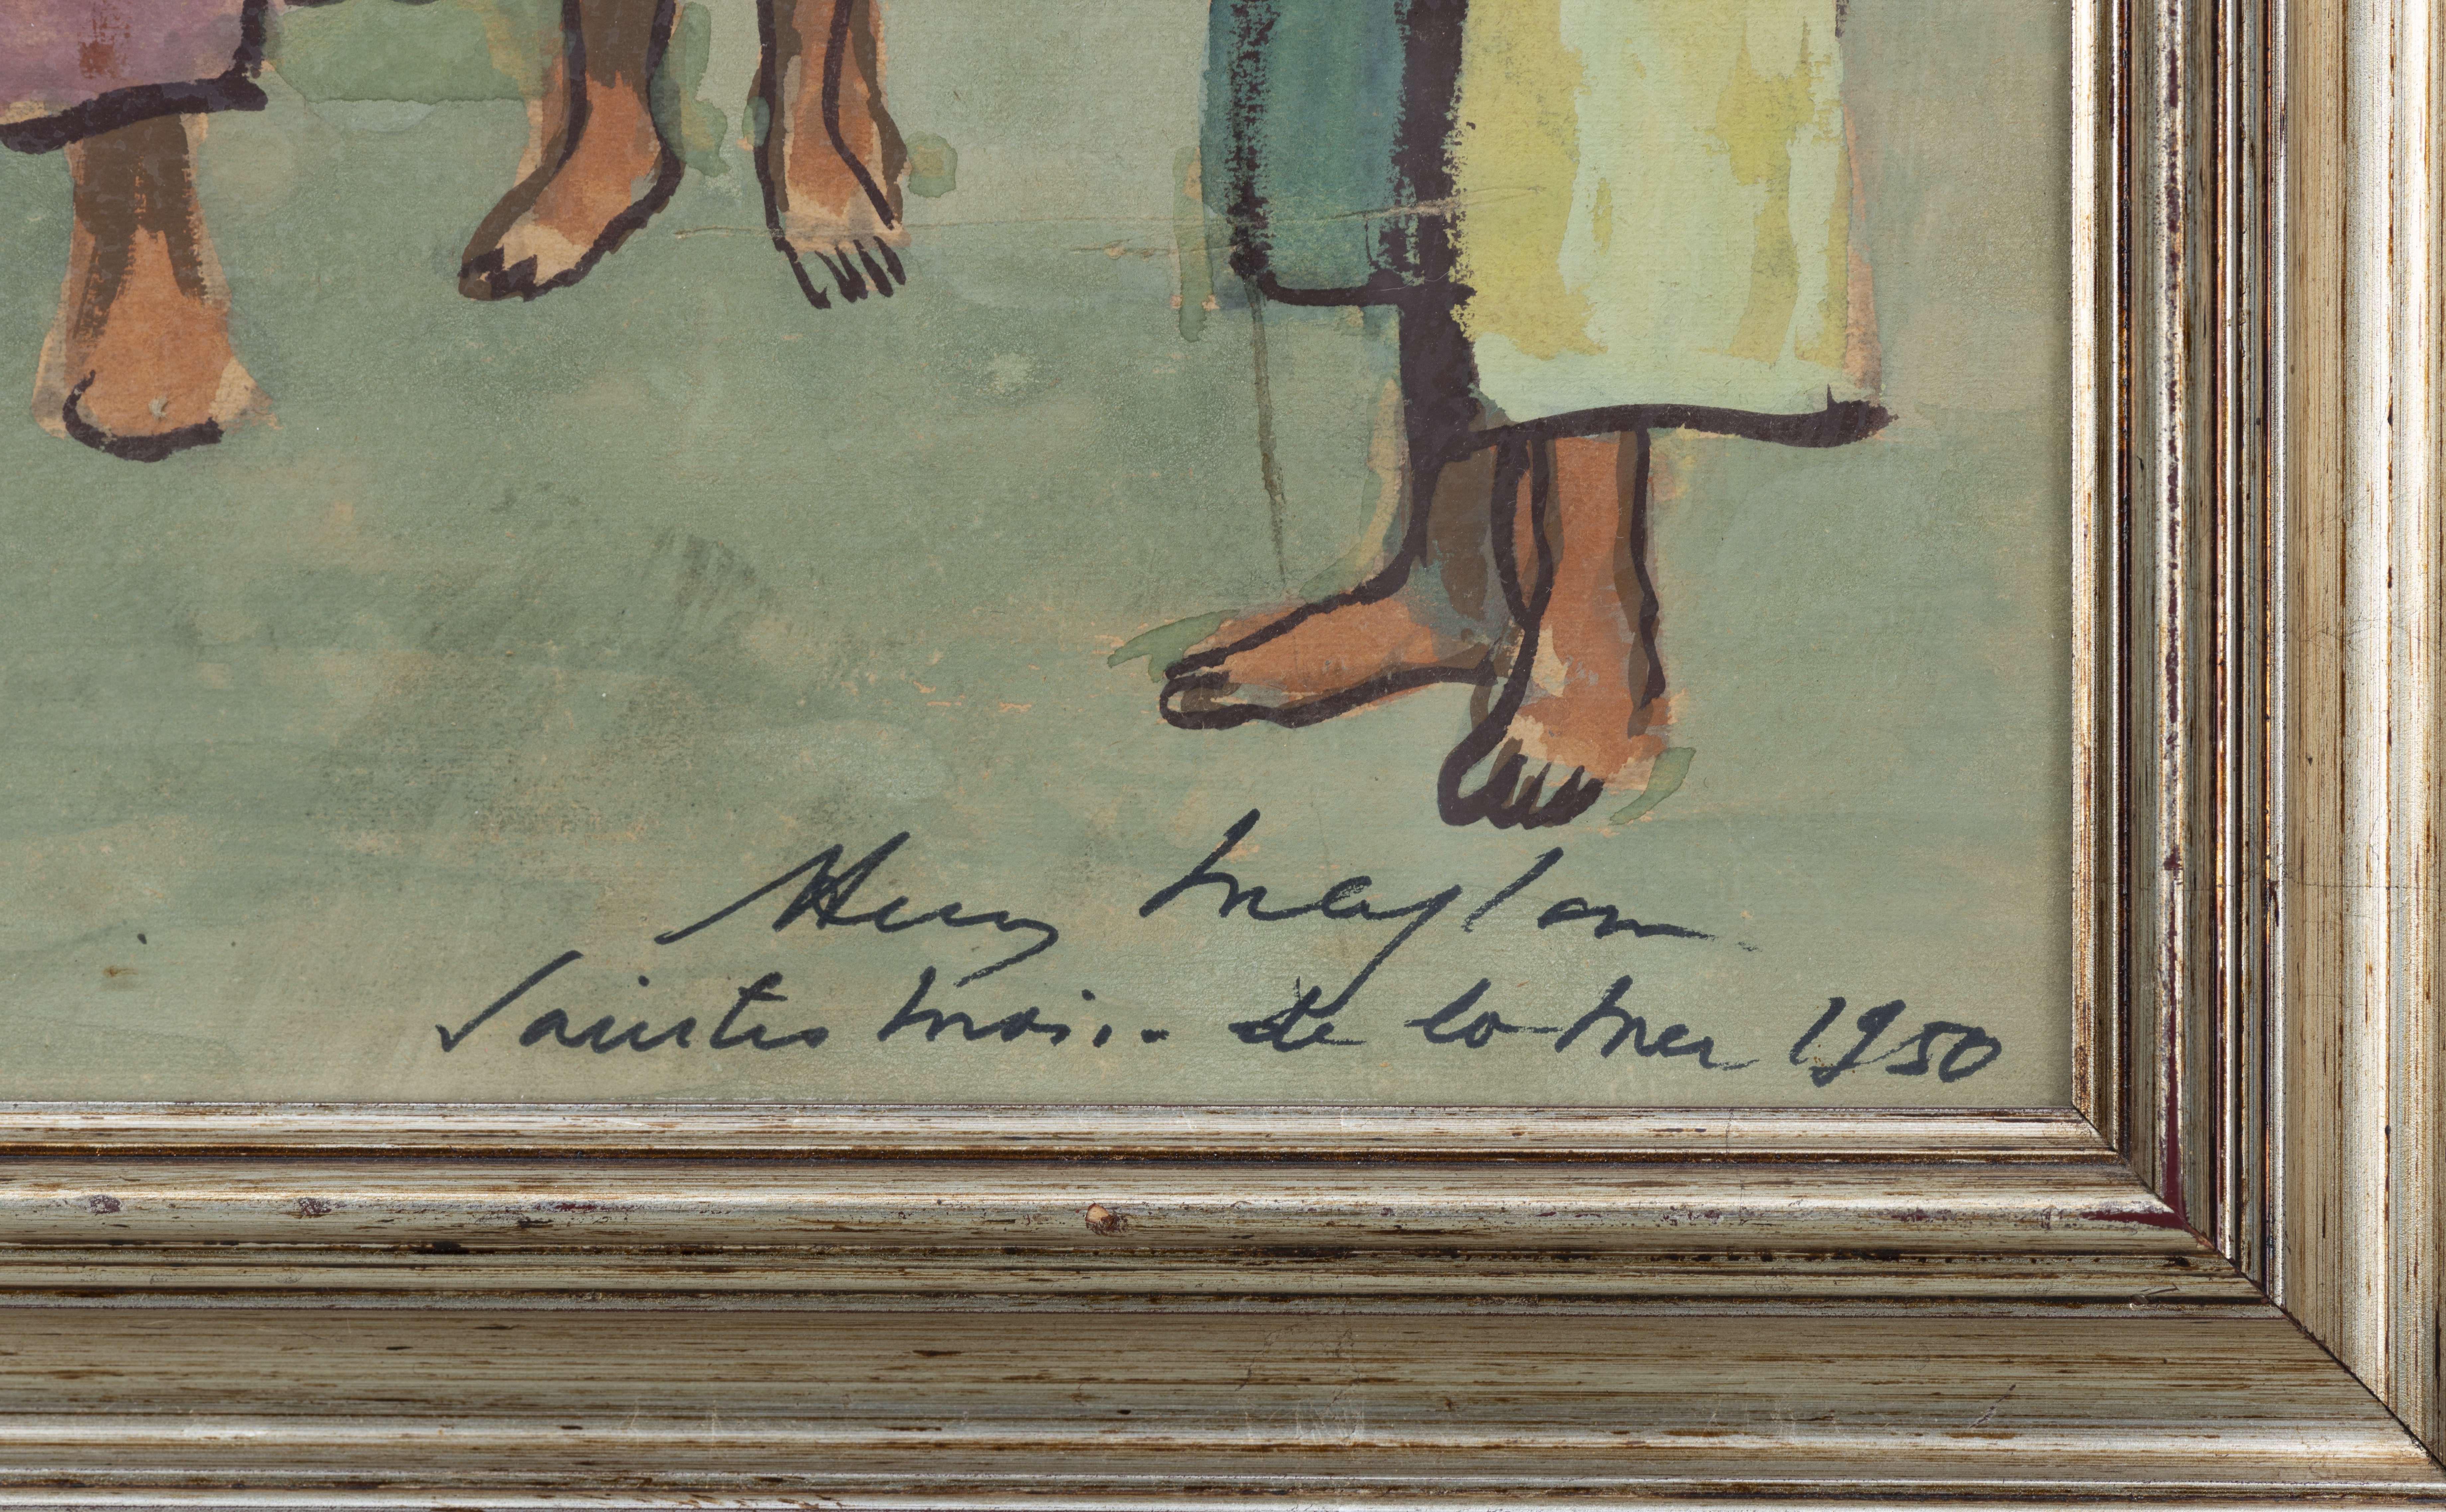 Henry Meylan
Saintes Maries de la Mer 1950